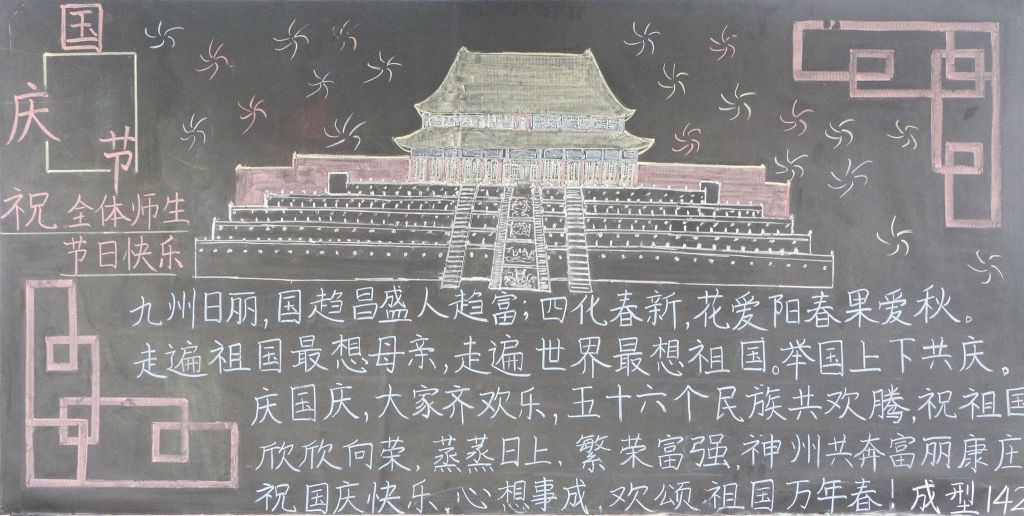 国庆节
祝 全体师生
节日快乐
九州日丽,国趋昌盛人趋富;四化春新,花爱阳春果爱秋。
走遍祖国最想母亲,走遍世界最想祖国。举国上下共庆。
庆国庆,大家齐欢乐,五十六个民族共欢腾,祝祖国
欣欣向荣,蒸蒸日上,繁荣富强,神州共奔富丽康庄
祝国庆快乐,心想事成,欢颂祖国万年春!成型142